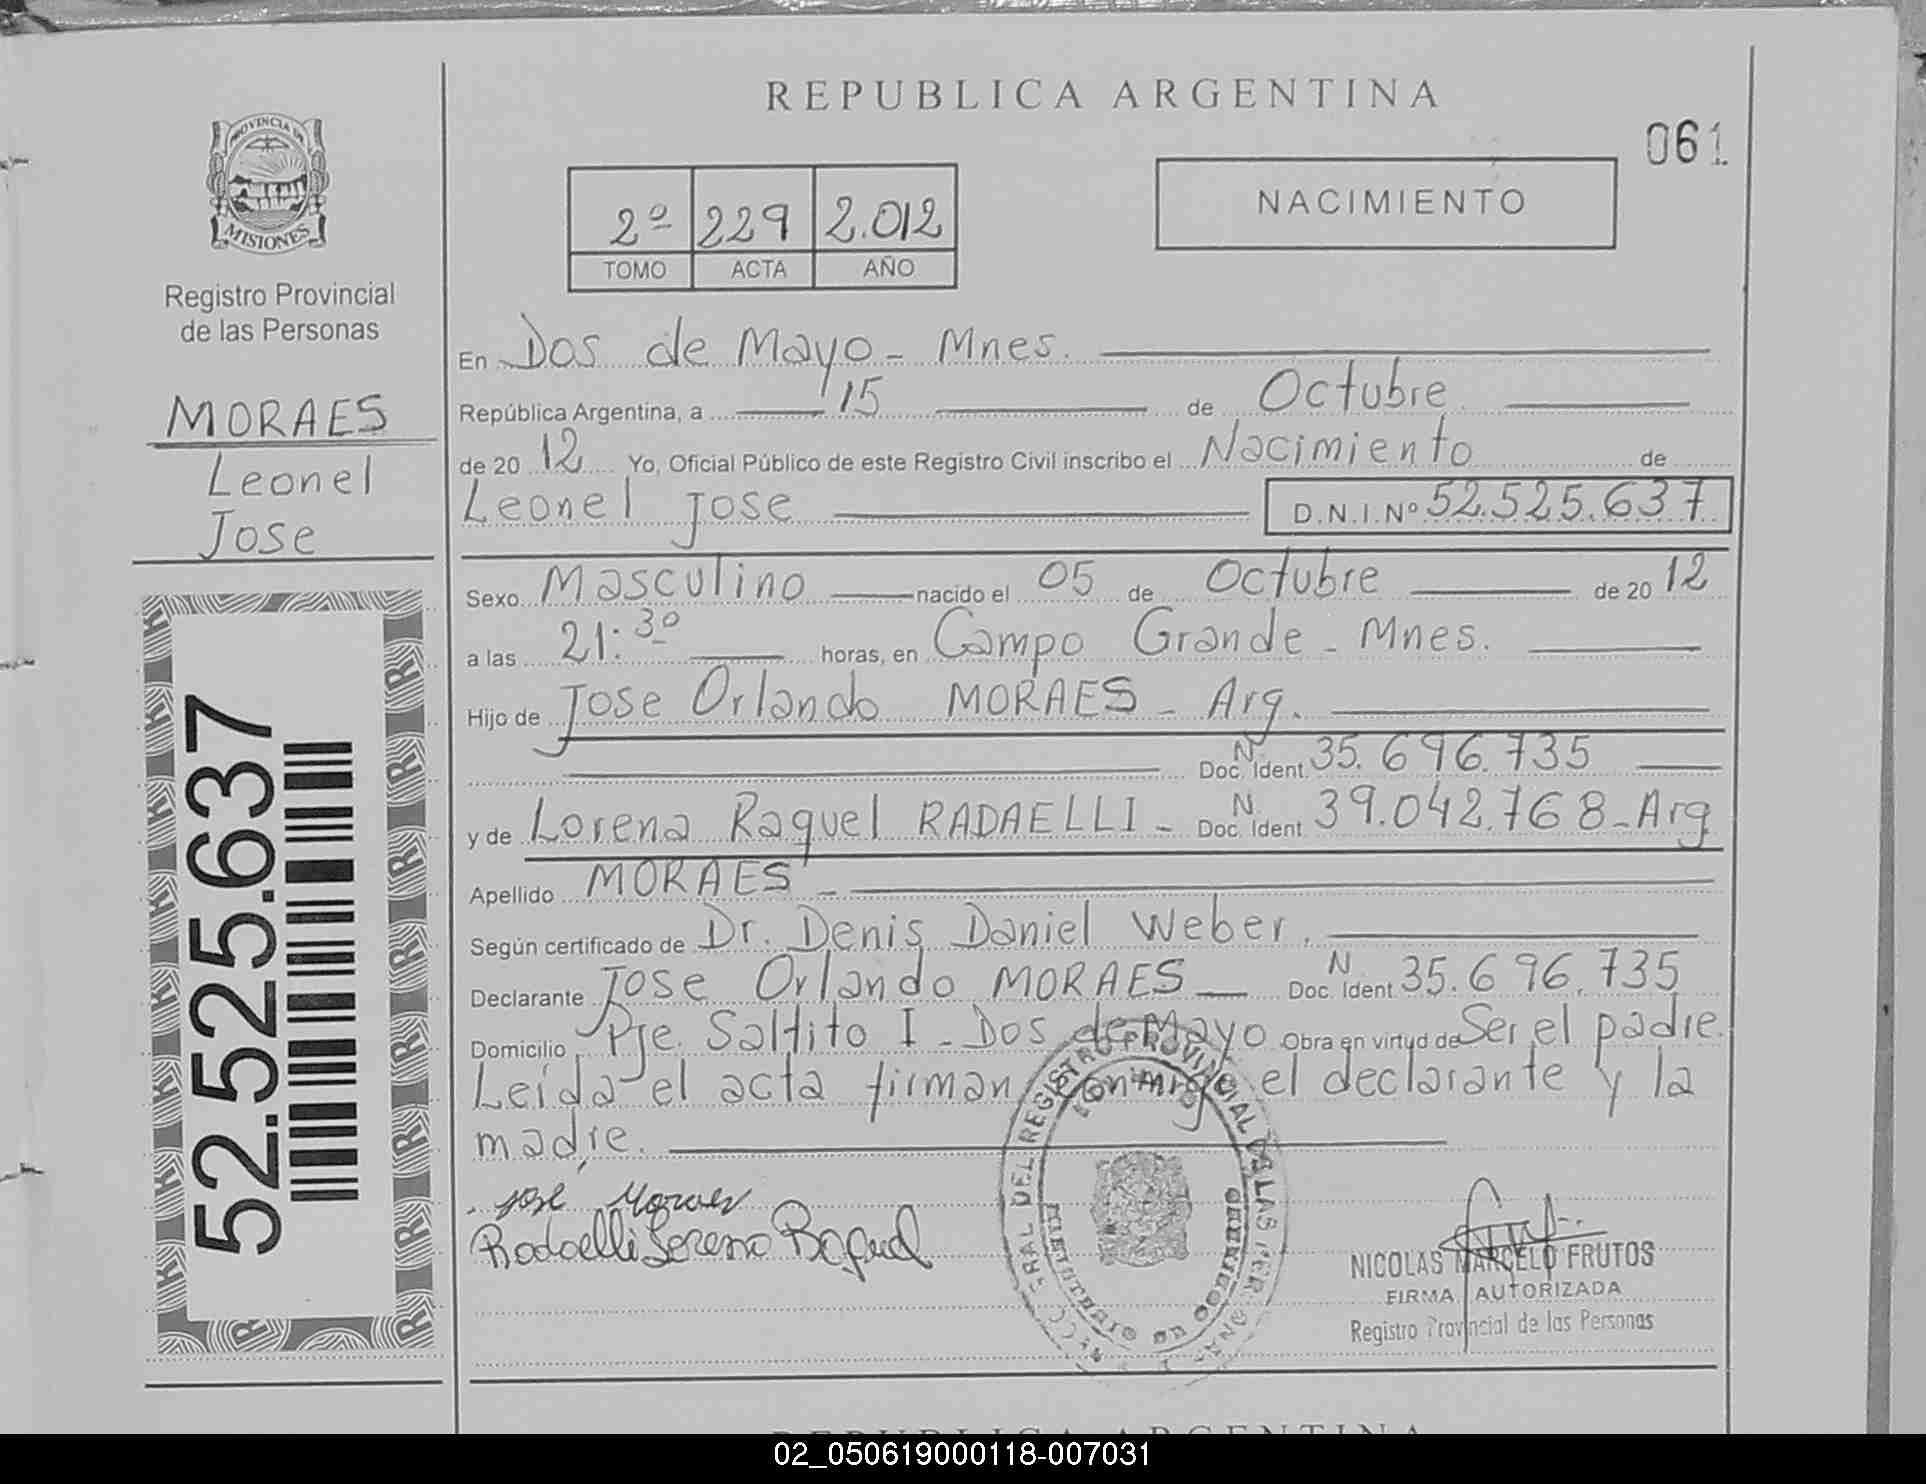 REPUBLICA ARGENTINA
061
PROVINCIA DE
MISIONES
Registro Provincial
de las Personas
2º 229 2.012
TOMO ACTA AÑO
NACIMIENTO
MORAES
Leonel
Jose
52.525.637
En Dos de Mayo - Mnes.
República Argentina, a 15 de Octubre
de 20 12 Yo, Oficial Público de este Registro Civil inscribo el Nacimiento de
Leonel Jose D.N.I.Nº 52.525.637
Sexo Masculino nacido el 05 de Octubre de 20 12
a las 21:30 horas, en Campo Grande - Mnes.
Hijo de Jose Orlando MORAES - Arg.
Doc. Ident. N. 35.696.735
y de Lorena Raquel RADAELLI - Doc. Ident. N. 39.042.768 - Arg
Apellido MORAES -
Según certificado de Dr. Denis Daniel Weber.
Declarante Jose Orlando MORAES Doc. Ident. N 35.696.735
Domicilio Pje. Saltito I - Dos de Mayo Obra en virtud de Ser el padre.
Leída el acta firman conmigo el declarante y la
madre.
José Moraes
Radaelli Lorena Raquel
REGISTRO PROVINCIAL DE LAS
MINISTERIO DE GOBIERNO
NICOLAS MARCELO FRUTOS
FIRMA AUTORIZADA
Registro Provincial de las Personas
REPUBLICA ARGENTINA
02_050619000118-007031